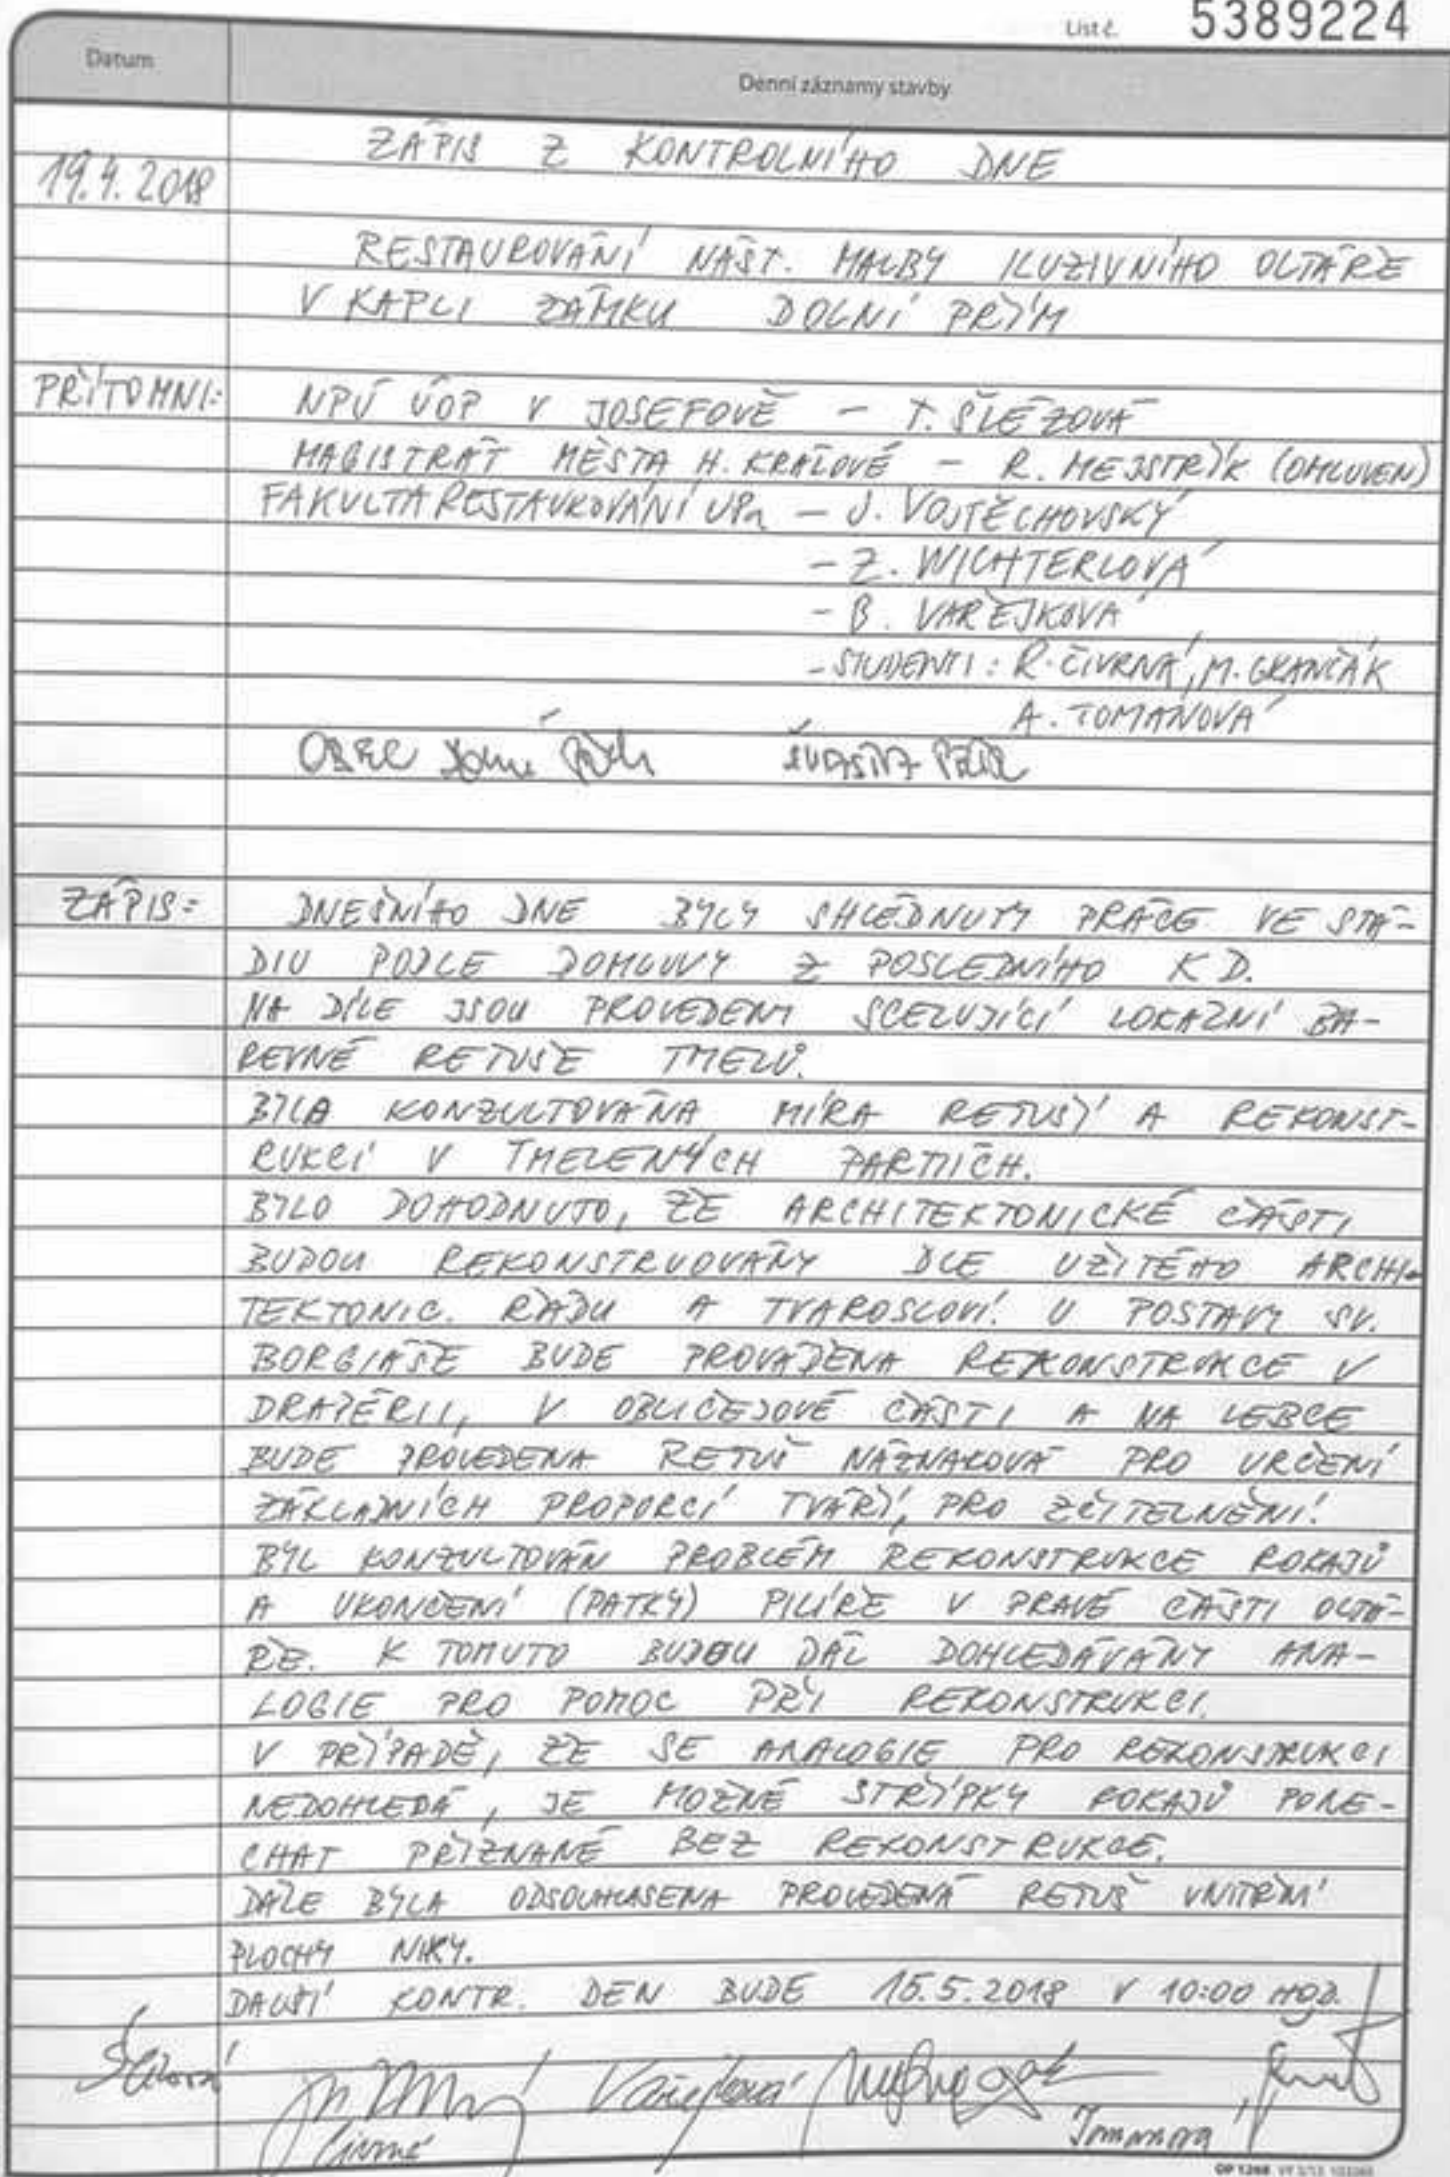 List č. 5389224
Datum
Denní záznamy stavby
ZÁPIS Z KONTROLNÍHO DNE
19.4.2018
RESTAUROVÁNÍ NÁST. MALBY ILUZIVNÍHO OLTÁŘE
V KAPLI ZÁMKU DOLNÍ PŘÍM
PŘÍTOMNI:
NPÚ ÚOP V JOSEFOVĚ – T. ŠLÉZOVÁ
MAGISTRÁT MĚSTA H. KRÁLOVÉ – R. MEJSTŘÍK (OMLUVEN)
FAKULTA RESTAUROVÁNÍ UPa – J. VOJTĚCHOVSKÝ
– Z. WICHTERLOVÁ
– B. VAŘEJKOVÁ
– STUDENTI: R. ČIVRNÁ, M. GRANČÁK
A. TOMANOVÁ
OBEC Dolní Přím
ZÁPIS:
DNEŠNÍHO DNE BYLY SHLÉDNUTY PRÁCE VE STÁ-
DIU PODLE DOMLUVY Z POSLEDNÍHO KD.
NA DÍLE JSOU PROVEDENY SCELUJÍCÍ LOKÁLNÍ BA-
REVNÉ RETUŠE TMELŮ.
BYLA KONZULTOVÁNA MÍRA RETUŠÍ A REKONST-
RUKCÍ V TMELENÝCH PARTIÍCH.
BYLO DOHODNUTO, ŽE ARCHITEKTONICKÉ ČÁSTI
BUDOU REKONSTRUOVÁNY DLE UŽITÉHO ARCHI-
TEKTONIC. ŘÁDU A TVAROSLOVÍ. U POSTAVY SV.
BORGIÁŠE BUDE PROVÁDĚNA REKONSTRUKCE V
DRAPÉRII, V OBLIČEJOVÉ ČÁSTI A NA LEBCE
BUDE PROVEDENA RETUŠ NÁZNAKOVÁ PRO URČENÍ
ZÁKLADNÍCH PROPORCÍ TVÁŘÍ, PRO ZČITELNĚNÍ.
BYL KONZULTOVÁN PROBLÉM REKONSTRUKCE ROKAJŮ
A UKONČENÍ (PATKY) PILÍŘE V PRAVÉ ČÁSTI OLTÁ-
ŘE. K TOMUTO BUDOU DÁL DOHLEDÁVÁNY ANA-
LOGIE PRO POMOC PŘI REKONSTRUKCI.
V PŘÍPADĚ, ŽE SE ANALOGIE PRO REKONSTRUKCI
NEDOHLEDÁ, JE MOŽNÉ STŘÍPKY ROKAJŮ PONE-
CHAT PŘIZNANÉ BEZ REKONSTRUKCE.
DÁLE BYLA ODSOUHLASENA PROVEDENÁ RETUŠ VNITŘNÍ
PLOCHY NIKY.
DALŠÍ KONTR. DEN BUDE 15.5.2018 V 10:00 HOD.
Šlézová
Vařejková
Čivrná
Tomanová
OP 1268